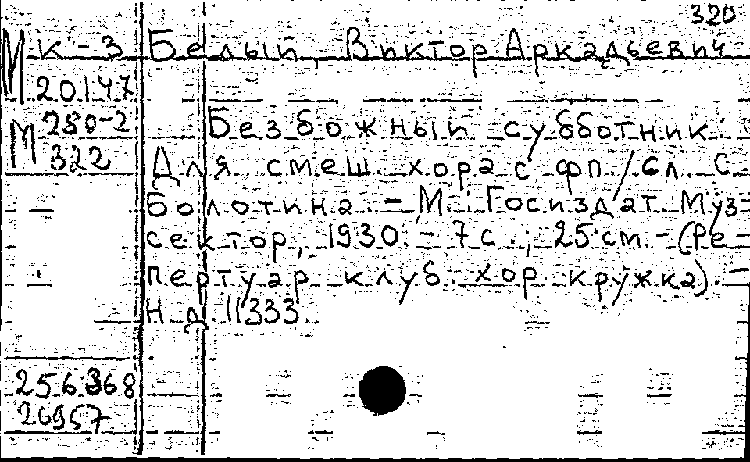 320
М К-3 Белый, Виктор Аркадьевич
20147
М 280-2 Безбожный субботник.
322 Для смеш. хора с фп. / Сл. С.
Болотина. - М.: Госиздат. Муз-
сектор, 1930. - 7 с.; 25 см. - (Ре-
пертуар клуб. хор. кружка). -
Н.д. 11333.
256.868
26957